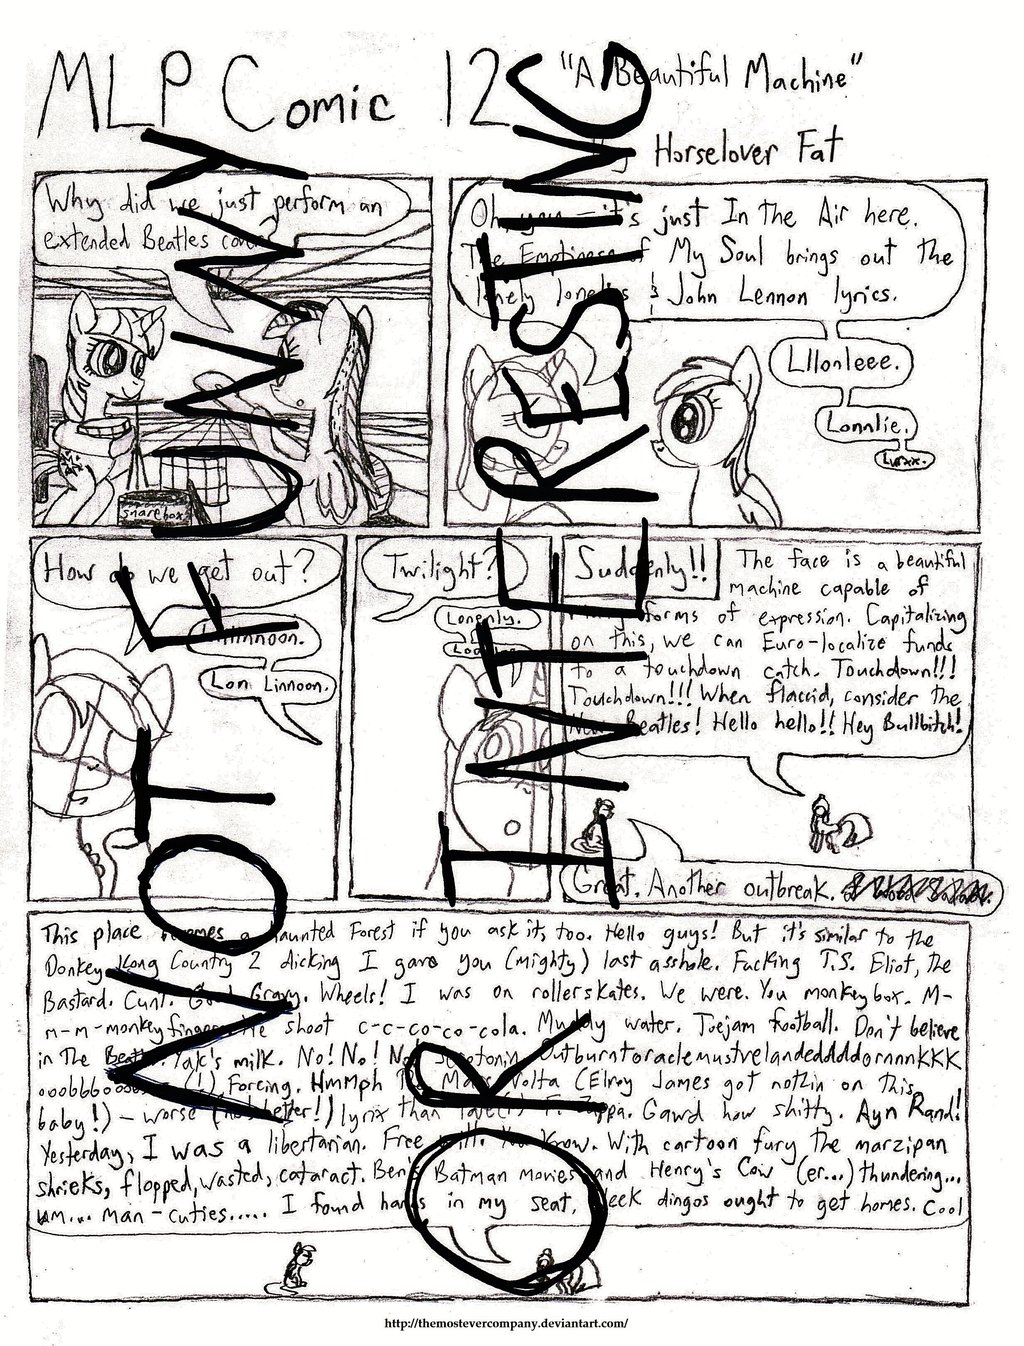 MLP Comic 12 "A Beautiful Machine"
By Horselover Fat
NOT FUNNY
OR INTERESTING
Why did we just perform an
extended Beatles cover?
snarebox
Oh, you — it's just In The Air here.
The Emptiness of My Soul brings out the
lonely lonelies & John Lennon lyrics.
Lllonleee.
Lonnlie.
Lyrxx.
How do we get out?
Lon Linnoon.
Twilight?
Lonenly.
Suddenly!!
The face is a beautiful
machine capable of
many forms of expression. Capitalizing
on this, we can Euro-localize funds
to a touchdown catch. Touchdown!!!
Touchdown!!! When flaccid, consider the
New Beatles! Hello hello!! Hey Bullbitch!
Great. Another outbreak.
This place becomes a Haunted Forest if you ask it, too. Hello guys! But it's similar to the
Donkey Kong Country 2 dicking I gave you (mighty) last asshole. Fucking T.S. Eliot, the
Bastard. Cunt. Good Gravy. Wheels! I was on rollerskates. We were. You monkey box. M-
m-m-monkey finger. He shoot c-c-co-co-cola. Muddy water. Toejam football. Don't believe
in The Beatles. Yak's milk. No! No! No! Serotonin
(!) Forcing. Hmmph The Mars Volta (Elroy James got nothin on this,
baby!) — worse (not better!) lyrix than F. Zappa. Gawd how shitty. Ayn Rand!
Yesterday, I was a libertarian. Free will. You know. With cartoon fury the marzipan
shrieks, flopped, wasted, cataract. Ben's Batman movies and Henry's Cow (er...) thundering...
um... man-cuties..... I found in my seat, dingos ought to get homes. Cool
http://themostevercompany.deviantart.com/